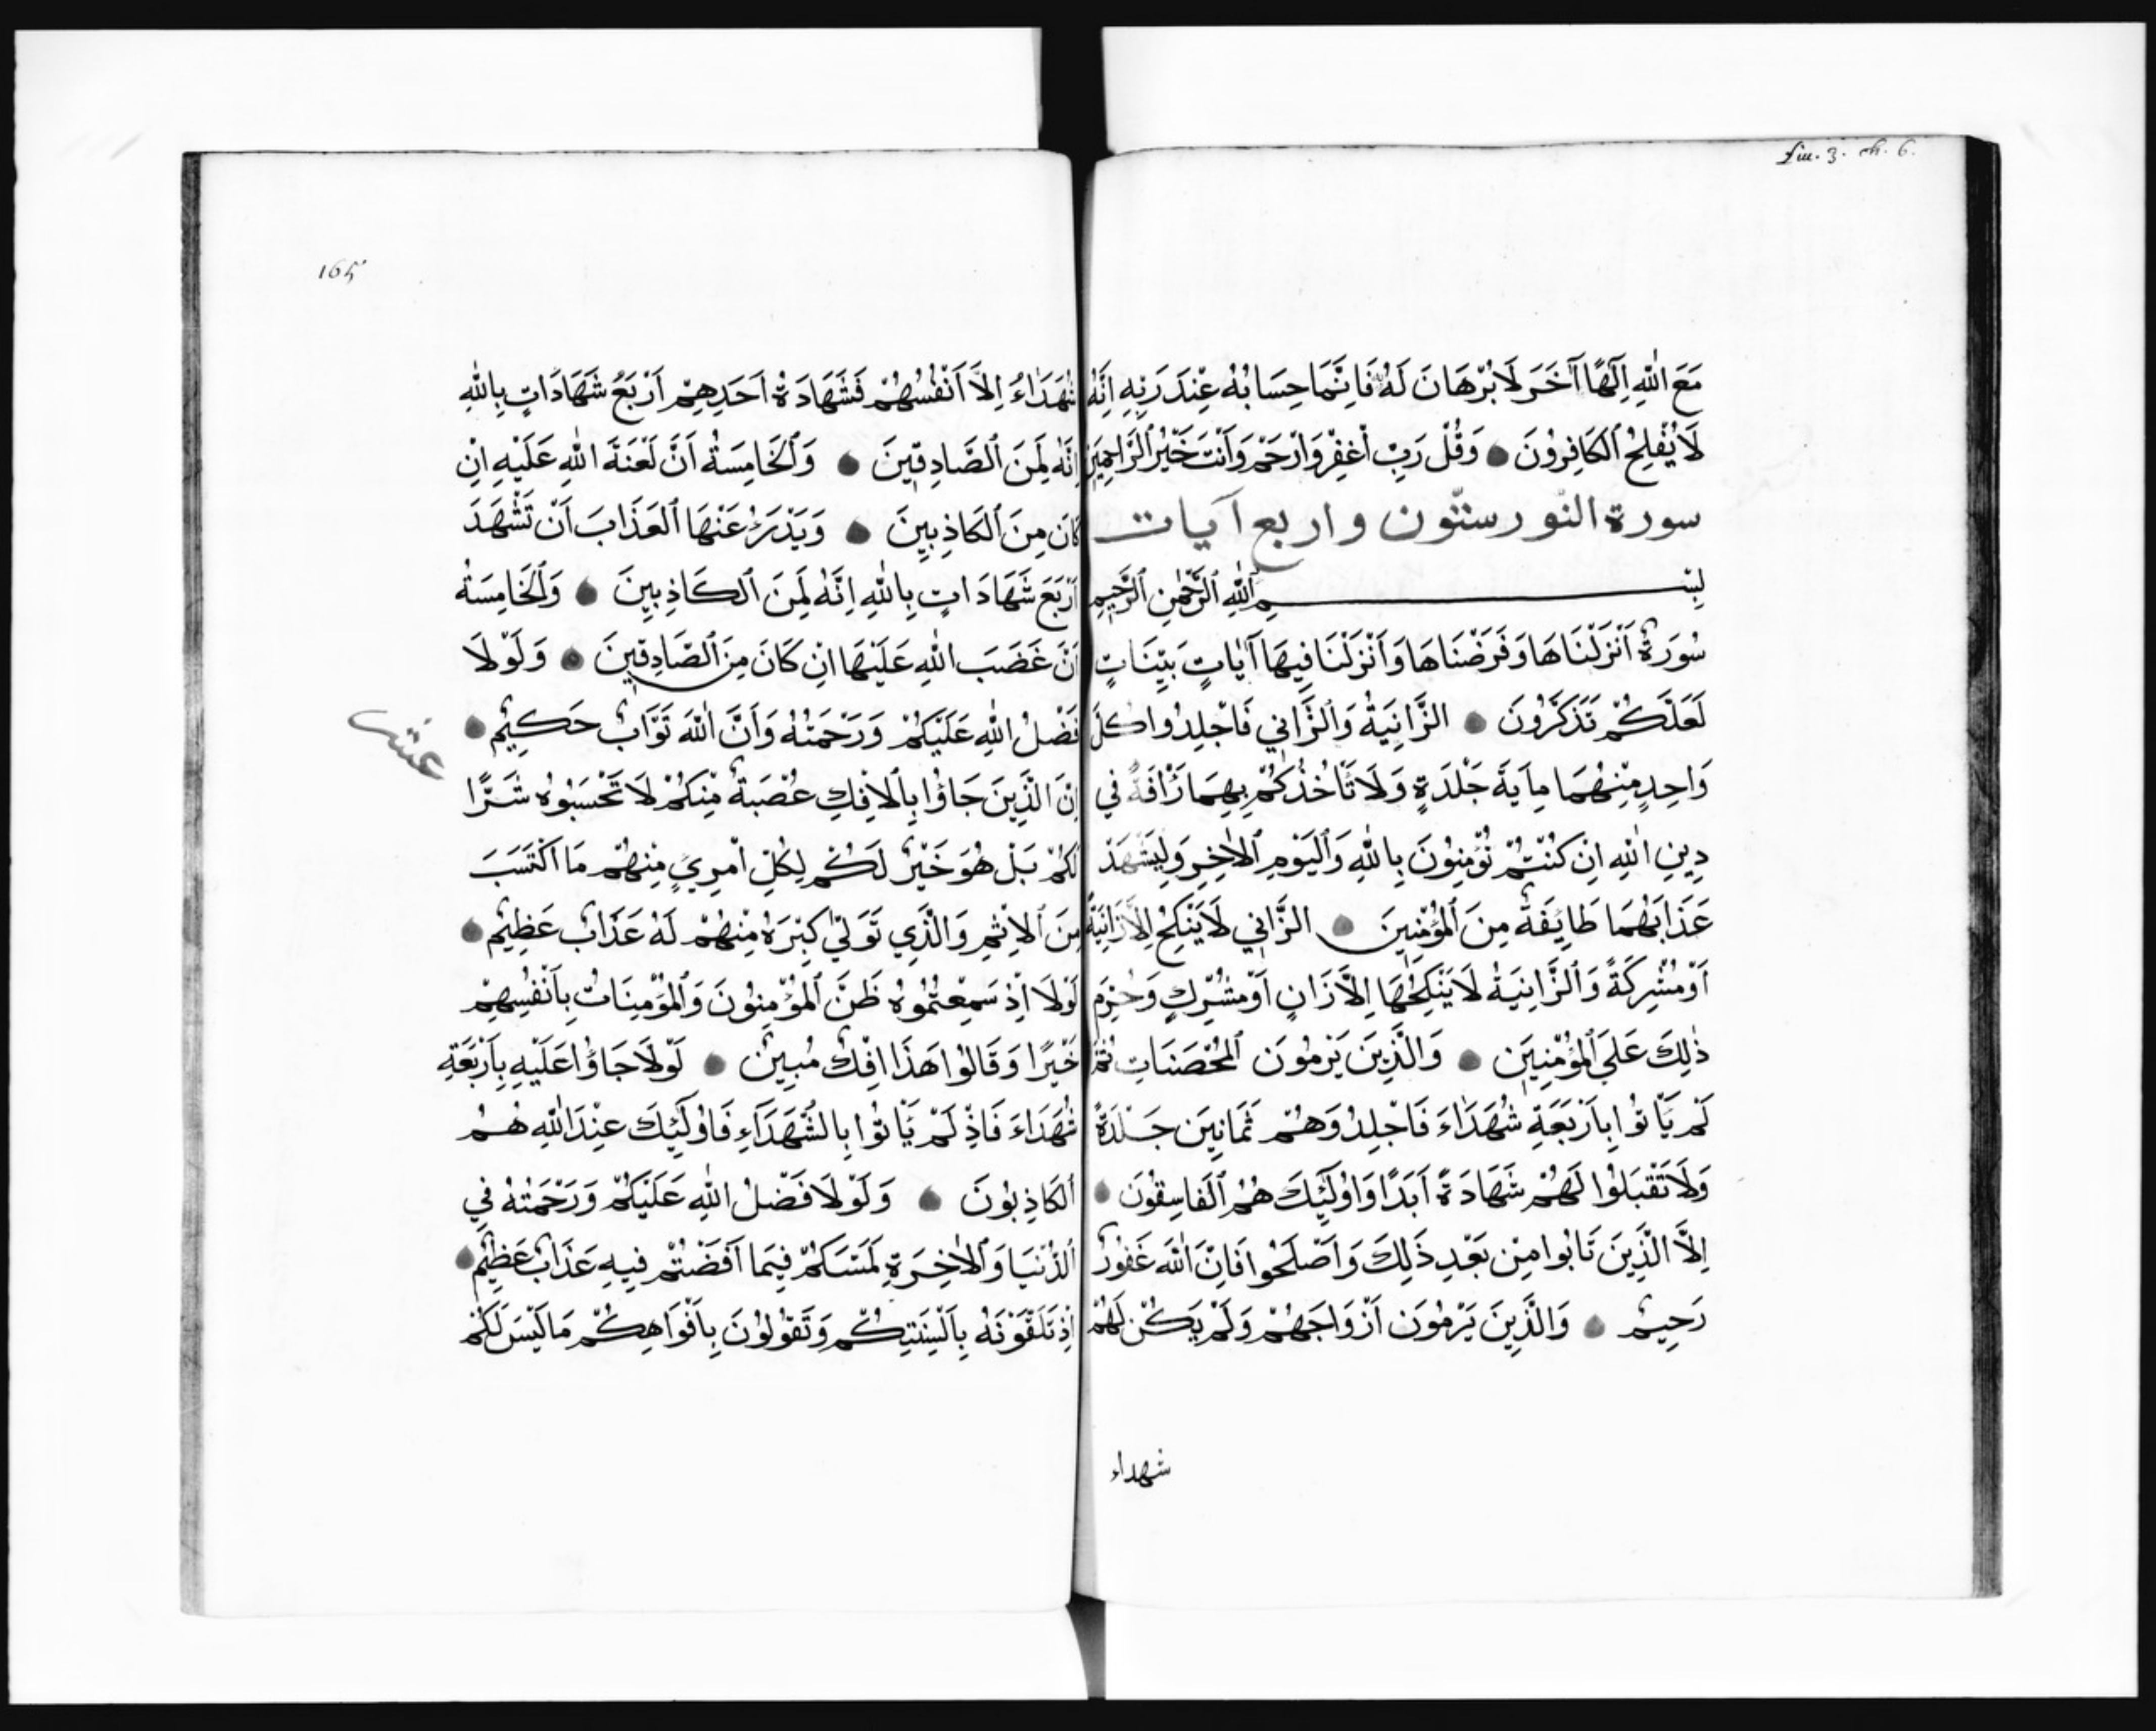 fiu. 3. ch. 6.
مَعَ اللّٰهِ اِلٰهًا آخَرَ لَا بُرْهَانَ لَهُ فَاِنَّمَا حِسَابُهُ عِنْدَ رَبِّهِ اِنَّهُ
لَا يُفْلِحُ الكَافِرُونَ وَقُلْ رَبِّ اغْفِرْ وَارْحَمْ وَاَنْتَ خَيْرُ الرَّاحِمِينَ
سورة النّور ستّون و اربع آيات
بِسْمِ اللّٰهِ الرَّحْمٰنِ الرَّحِيمِ
سُورَةٌ اَنْزَلْنَاهَا وَفَرَضْنَاهَا وَاَنْزَلْنَا فِيهَا آيَاتٍ بَيِّنَاتٍ
لَعَلَّكُمْ تَذَكَّرُونَ الزَّانِيَةُ وَالزَّانِي فَاجْلِدُوا كُلَّ
وَاحِدٍ مِنْهُمَا مِايَةَ جَلْدَةٍ وَلَا تَأْخُذْكُمْ بِهِمَا رَأْفَةٌ فِي
دِينِ اللّٰهِ اِنْ كُنْتُمْ تُؤْمِنُونَ بِاللّٰهِ وَاليَوْمِ الاٰخِرِ وَلْيَشْهَدْ
عَذَابَهُمَا طَايِفَةٌ مِنَ المُؤْمِنِينَ الزَّانِي لَا يَنْكِحُ اِلَّا زَانِيَةً
اَوْ مُشْرِكَةً وَالزَّانِيَةُ لَا يَنْكِحُهَا اِلَّا زَانٍ اَوْ مُشْرِكٍ وَحُرِّمَ
ذٰلِكَ عَلَى المُؤْمِنِينَ وَالَّذِينَ يَرْمُونَ المُحْصَنَاتِ ثُمَّ
لَمْ يَأْتُوا بِاَرْبَعَةِ شُهَدَاءَ فَاجْلِدُوَهُمْ ثَمَانِينَ جَلْدَةً
وَلَا تَقْبَلُوا لَهُمْ شَهَادَةً اَبَدًا وَاُولَئِكَ هُمُ الفَاسِقُونَ
اِلَّا الَّذِينَ تَابُوا مِنْ بَعْدِ ذَلِكَ وَاَصْلَحُوا فَاِنَّ اللّٰهَ غَفُورٌ
رَحِيمٌ وَالَّذِينَ يَرْمُونَ اَزْوَاجَهُمْ وَلَمْ يَكُنْ لَهُمْ
شهداء
165
شُهَدَاءُ اِلَّا اَنْفُسُهُمْ فَشَهَادَةُ اَحَدِهِمْ اَرْبَعُ شَهَادَاتٍ بِاللّٰهِ
اِنَّهُ لَمِنَ الصَّادِقِينَ وَالخَامِسَةُ اَنَّ لَعْنَةَ اللّٰهِ عَلَيْهِ اِنْ
كَانَ مِنَ الكَاذِبِينَ وَيَدْرَؤُ عَنْهَا العَذَابَ اَنْ تَشْهَدَ
اَرْبَعَ شَهَادَاتٍ بِاللّٰهِ اِنَّهُ لَمِنَ الكَاذِبِينَ وَالخَامِسَةُ
اَنَّ غَضَبَ اللّٰهِ عَلَيْهَا اِنْ كَانَ مِنَ الصَّادِقِينَ وَلَوْلَا
فَضْلُ اللّٰهِ عَلَيْكُمْ وَرَحْمَتُهُ وَاَنَّ اللّٰهَ تَوَّابٌ حَكِيمٌ
عشر
اِنَّ الَّذِينَ جَاؤُا بِالاِفْكِ عُصْبَةٌ مِنْكُمْ لَا تَحْسَبُوهُ شَرًّا
لَكُمْ بَلْ هُوَ خَيْرٌ لَكُمْ لِكُلِّ امْرِيٍ مِنْهُمْ مَا اكْتَسَبَ
مِنَ الاِثْمِ وَالَّذِي تَوَلَّى كِبْرَهُ مِنْهُمْ لَهُ عَذَابٌ عَظِيمٌ
لَوْلَا اِذْ سَمِعْتُمُوهُ ظَنَّ المُؤْمِنُونَ وَالمُؤْمِنَاتُ بِاَنْفُسِهِمْ
خَيْرًا وَقَالُوا هَذَا اِفْكٌ مُبِينٌ لَوْلَا جَاؤُا عَلَيْهِ بِاَرْبَعَةِ
شُهَدَاءَ فَاِذْ لَمْ يَأْتُوا بِالشُّهَدَاءِ فَاُولَئِكَ عِنْدَ اللّٰهِ هُمُ
الكَاذِبُونَ وَلَوْلَا فَضْلُ اللّٰهِ عَلَيْكُمْ وَرَحْمَتُهُ فِي
الدُّنْيَا وَالاٰخِرَةِ لَمَسَّكُمْ فِيمَا اَفَضْتُمْ فِيهِ عَذَابٌ عَظِيمٌ
اِذْ تَلَقَّوْنَهُ بِاَلْسِنَتِكُمْ وَتَقُولُونَ بِاَفْوَاهِكُمْ مَا لَيْسَ لَكُمْ